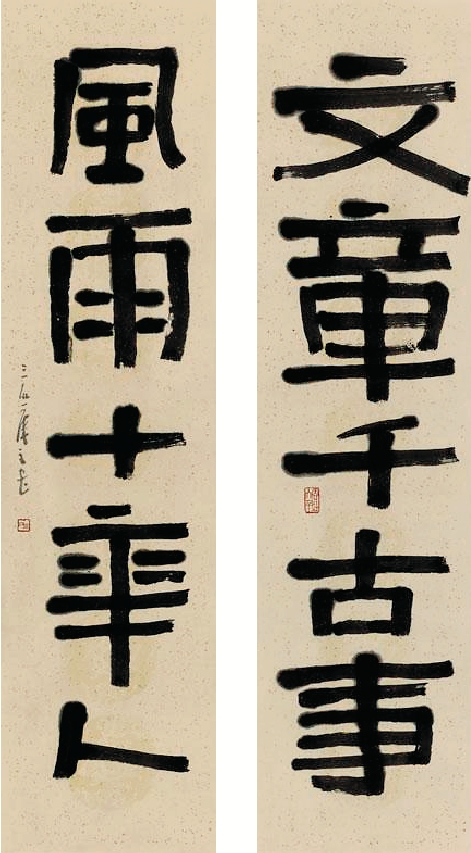 文章千古事
風雨十年人